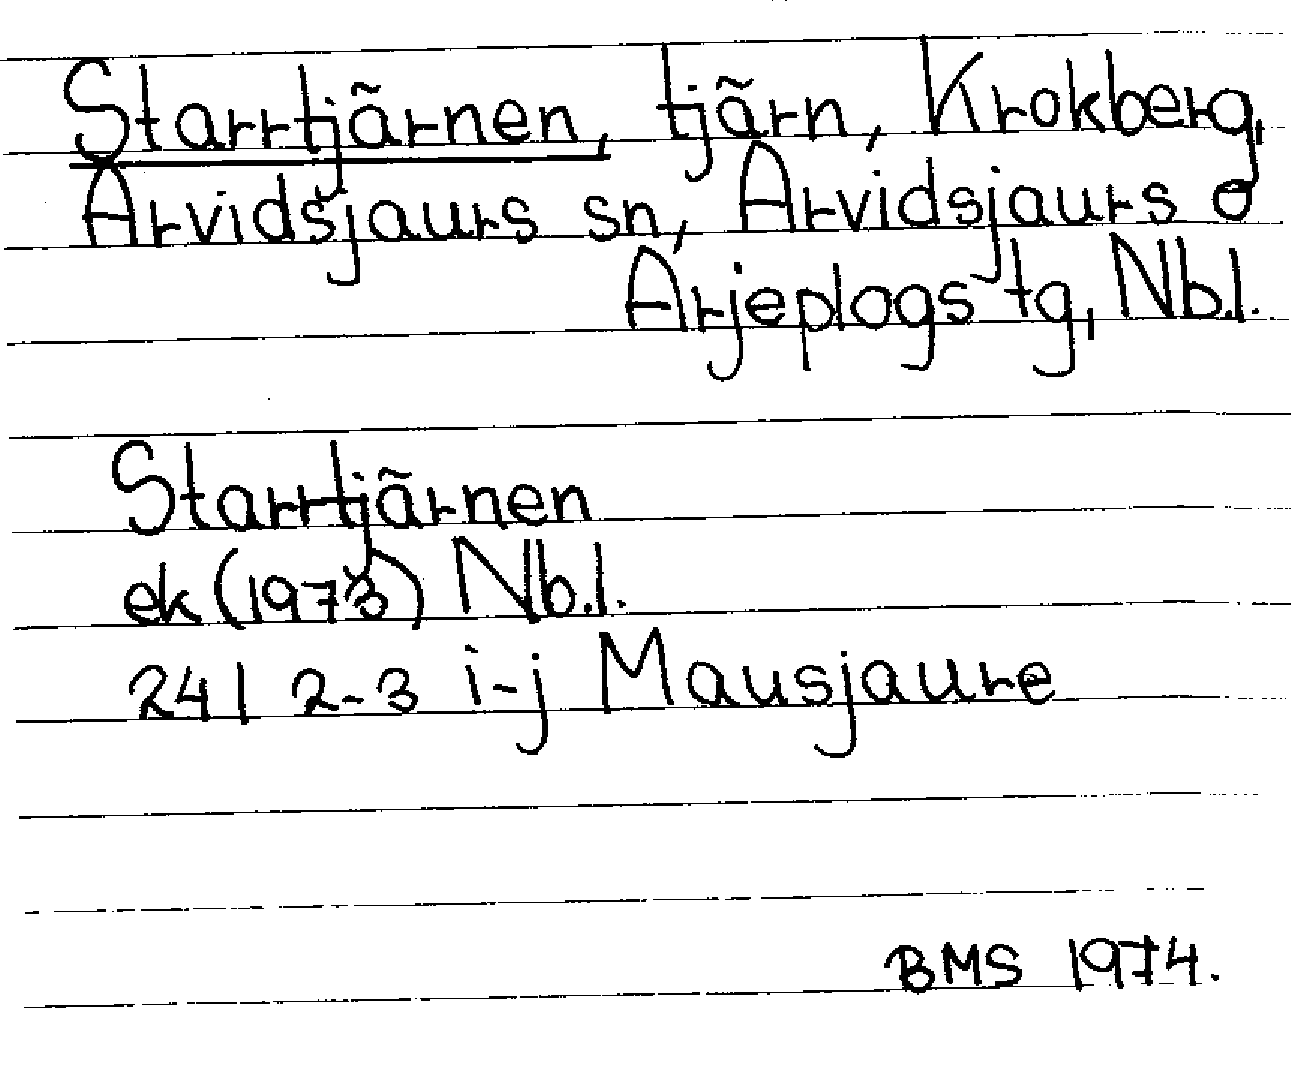 Starrtjärnen, tjärn, Krokberg,
Arvidsjaurs sn, Arvidsjaurs o
Arjeplogs tg, Nb.l.
Starrtjärnen
ek (1973) Nb.l.
24 I 2-3 i-j Mausjaure
BMS 1974.